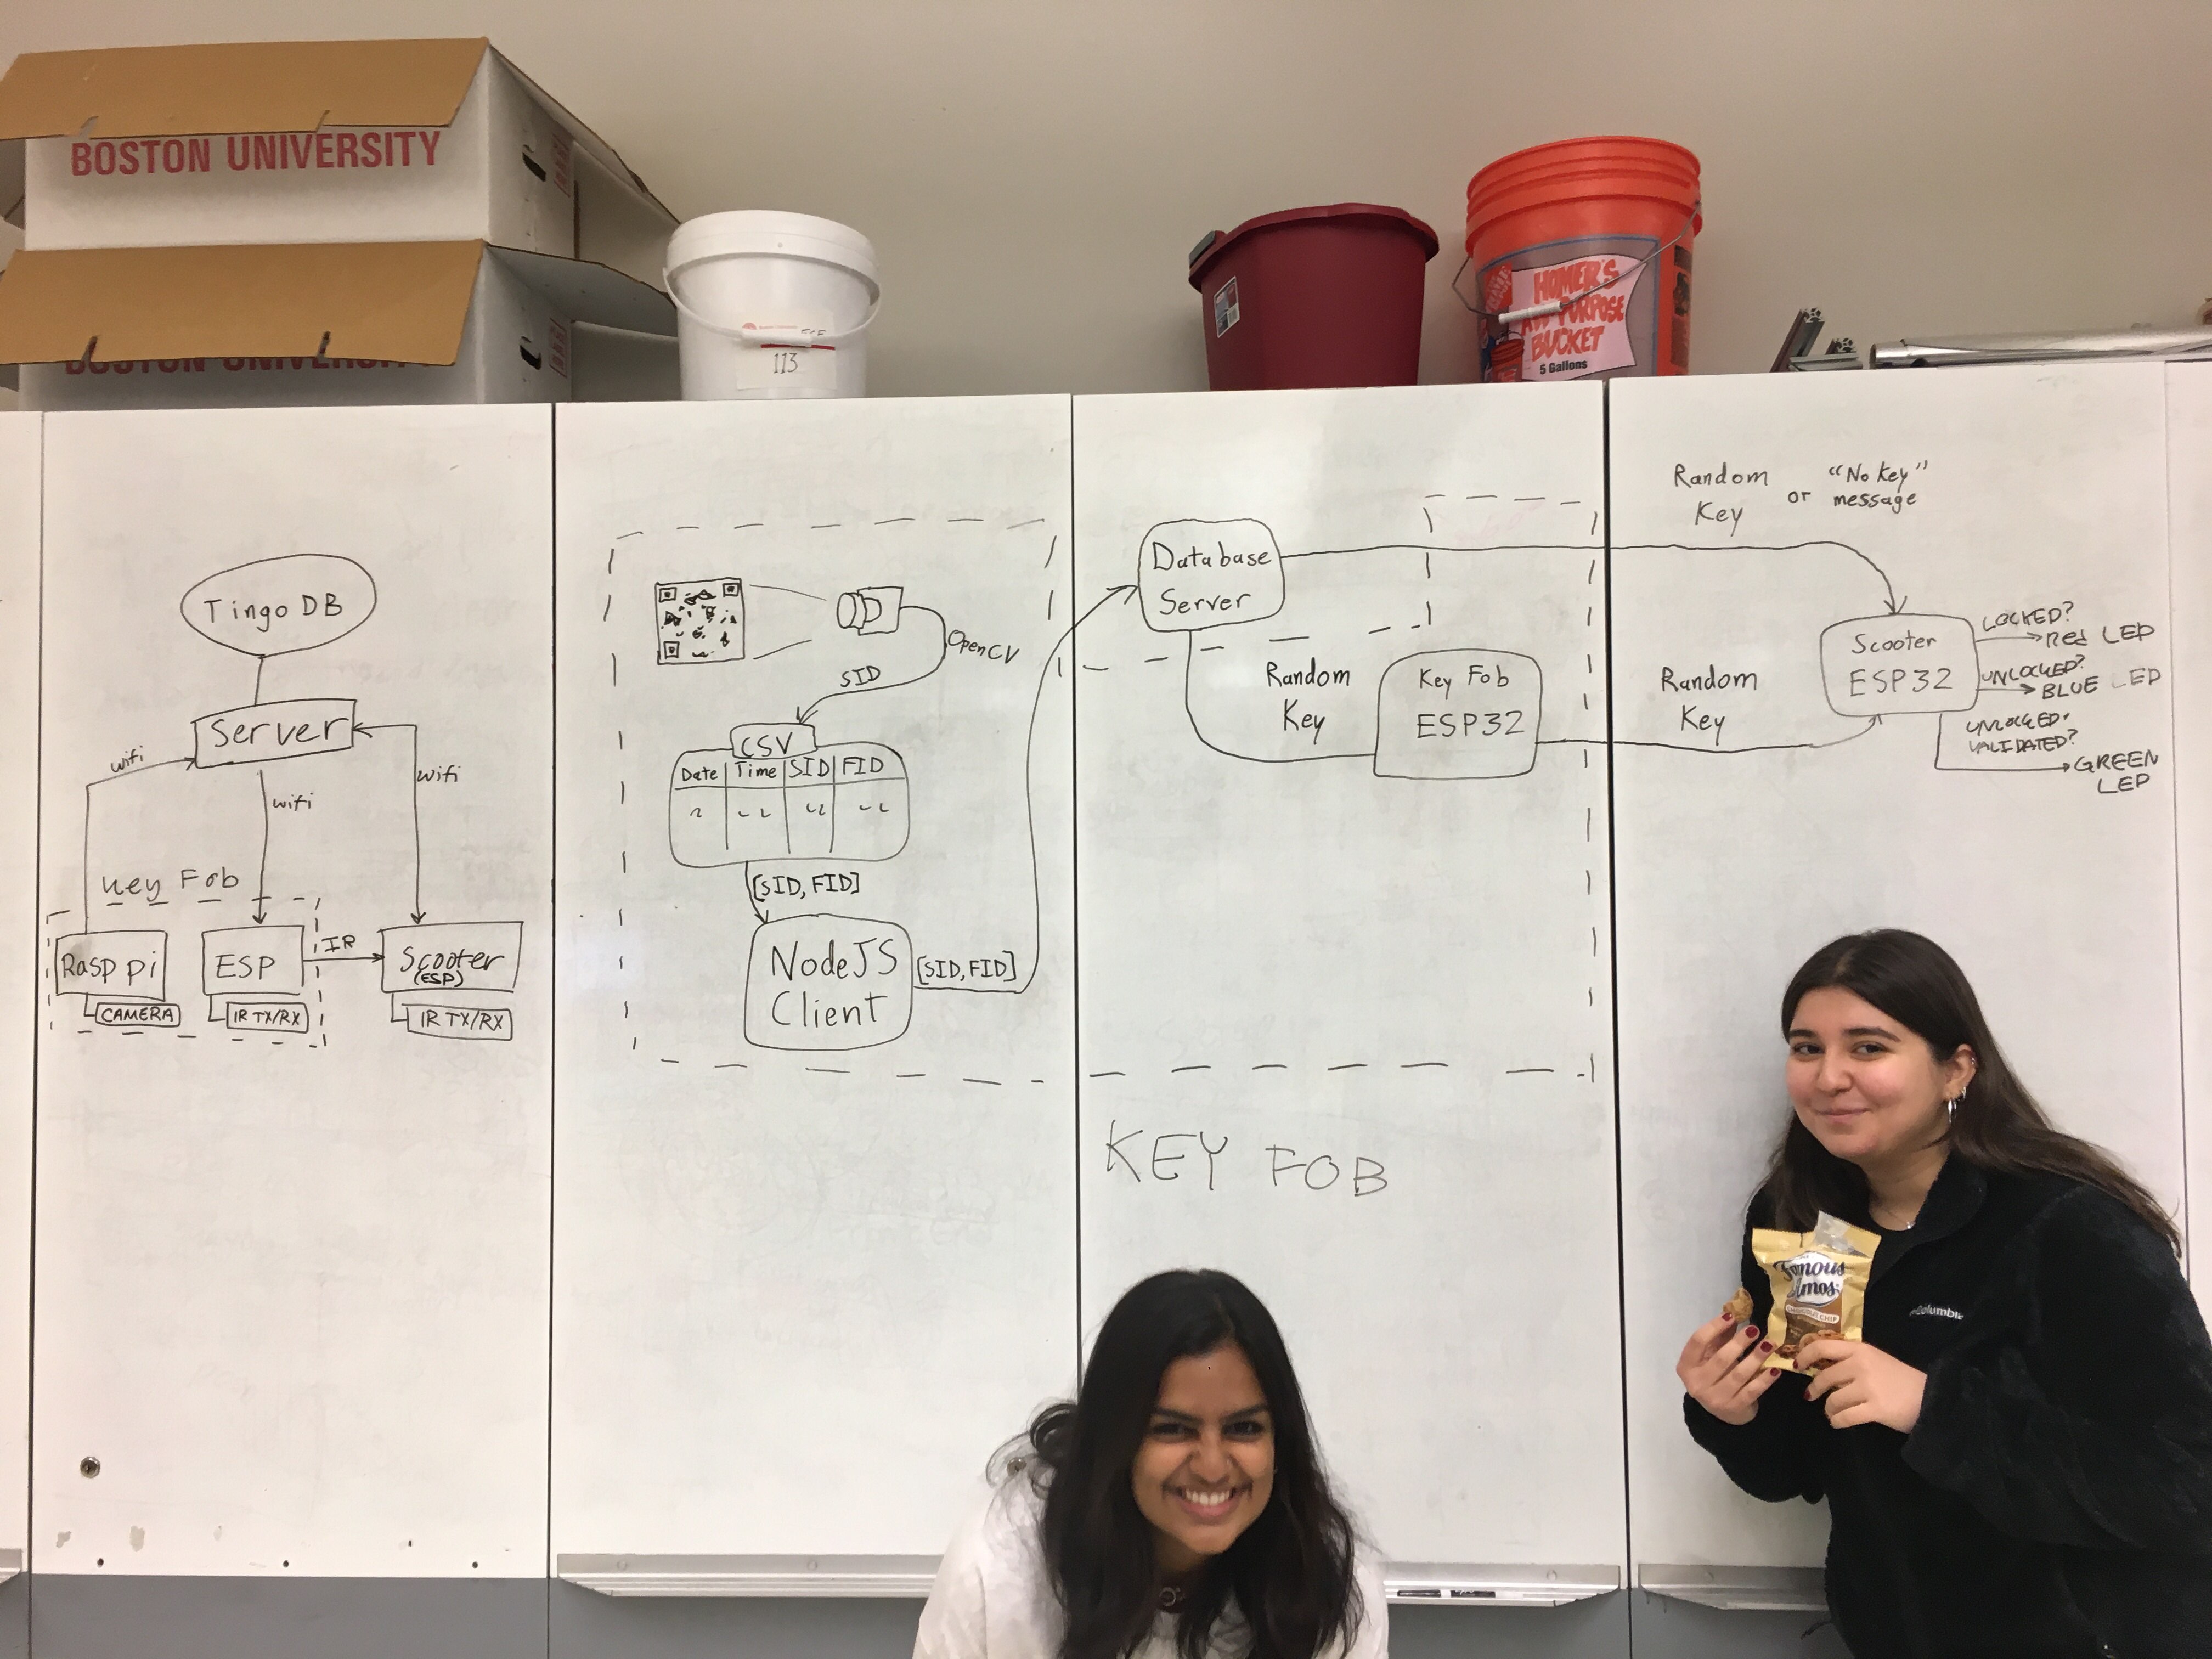 BOSTON UNIVERSITY
BOSTON UNIVERSITY
113
HOMER'S
ALL PURPOSE
BUCKET
5 Gallons
Tingo DB
Server
wifi
wifi
wifi
Key Fob
Rasp pi
CAMERA
ESP
IR TX/RX
IR
Scooter
(ESP)
IR TX/RX
OpenCV
SID
CSV
Date Time SID FID
[SID, FID]
NodeJS
Client
[SID, FID]
Database
Server
Random
Key
Key Fob
ESP32
KEY FOB
Random
Key
or
"No key"
message
Random
Key
Scooter
ESP32
LOCKED?
Red LED
UNLOCKED?
BLUE LED
UNLOCKED.
VALIDATED?
GREEN
LED
Famous
Amos
CHOCOLATE CHIP
Columbia